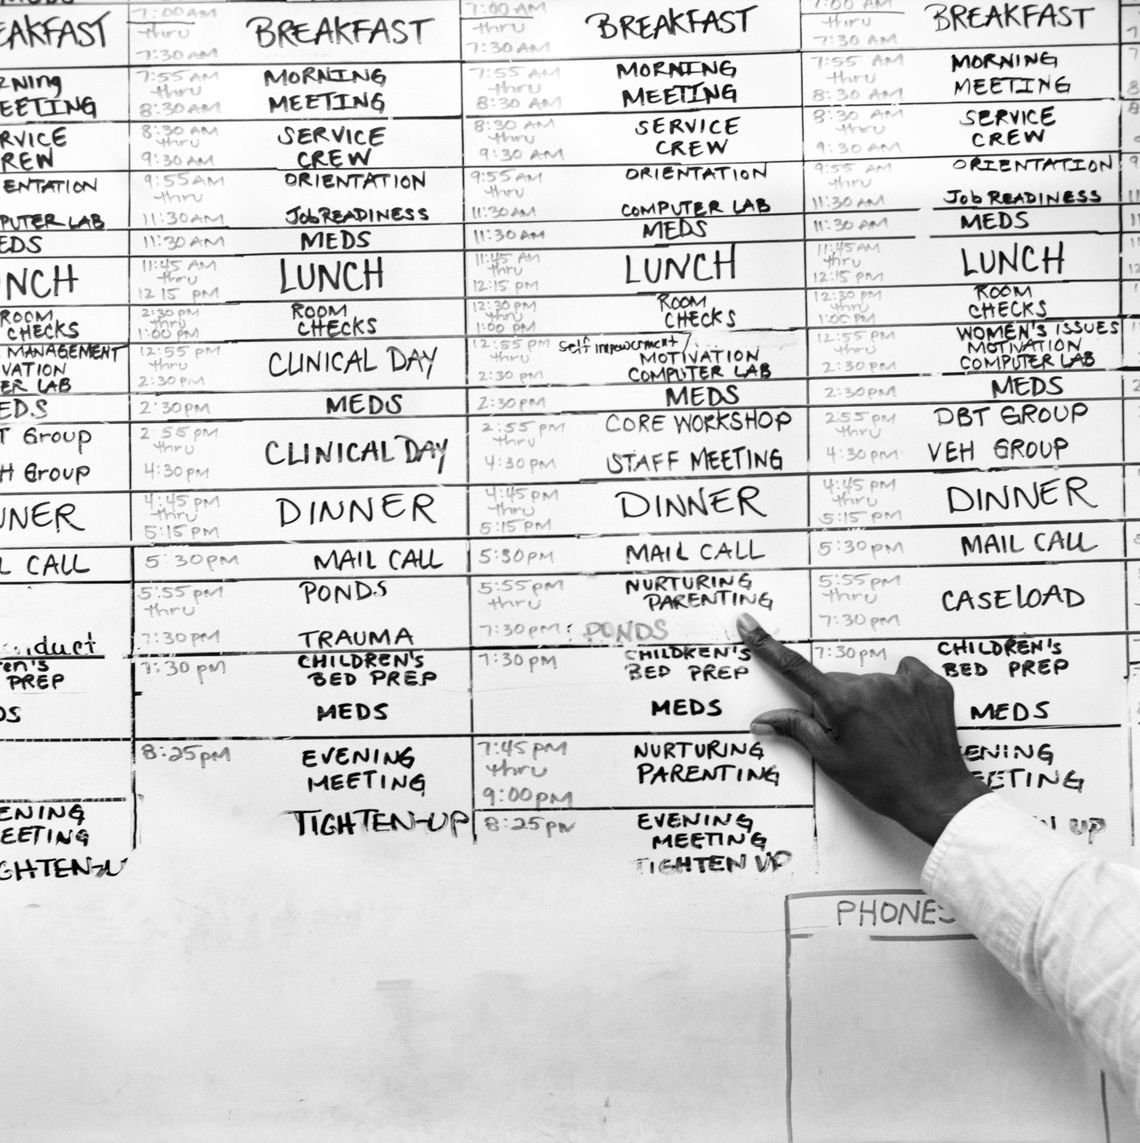 EAKFAST
rning
MEETING
RVICE
REW
ENTATION
PUTER LAB
EDS
NCH
ROOM
CHECKS
MANAGEMENT
VATION
ER LAB
EDS
T Group
H Group
NNER
L CALL
nduct
ren's
PREP
DS
ENING
EETING
GHTEN-U
7:00AM
thru
7:30AM
BREAKFAST
7:55 AM
thru
8:30AM
MORNING
MEETING
8:30AM
thru
9:30 AM
SERVICE
CREW
9:55AM
thru
11:30AM
ORIENTATION
Job READINESS
11:30 AM
MEDS
11:45 AM
thru
12:15 PM
LUNCH
2:30pm
thru
1:00pm
ROOM
CHECKS
12:55pm
thru
2:30pm
CLINICAL DAY
2:30pm
MEDS
2:55pm
thru
4:30pm
CLINICAL DAY
4:45pm
thru
5:15pm
DINNER
5:30pm
MAIL CALL
5:55pm
thru
7:30pm
PONDS
TRAUMA
7:30pm
CHILDREN'S
BED PREP
MEDS
8:25pm
EVENING
MEETING
TIGHTEN-UP
7:00 AM
thru
7:30AM
BREAKFAST
7:55 AM
thru
8:30 AM
MORNING
MEETING
8:30AM
thru
9:30 AM
SERVICE
CREW
9:55AM
thru
11:30AM
ORIENTATION
COMPUTER LAB
11:30AM
MEDS
11:45 AM
thru
12:15 pm
LUNCH
12:30pm
thru
1:00 pm
ROOM
CHECKS
12:55pm
thru
2:30pm
Self impowerment/
MOTIVATION
COMPUTER LAB
2:30pm
MEDS
2:55pm
thru
4:30pm
CORE WORKSHOP
STAFF MEETING
4:45pm
thru
5:15pm
DINNER
5:30pm
MAIL CALL
5:55pm
thru
7:30pm
NURTURING
PARENTING
PONDS
7:30pm
CHILDREN'S
BED PREP
MEDS
7:45pm
thru
9:00pm
NURTURING
PARENTING
8:25pm
EVENING
MEETING
TIGHTEN UP
7:00 AM
thru
7:30 AM
BREAKFAST
7:55 AM
thru
8:30 AM
MORNING
MEETING
8:30 AM
thru
9:30AM
SERVICE
CREW
9:55AM
thru
11:30AM
ORIENTATION
Job READINESS
11:30 AM
MEDS
11:45AM
thru
12:15pm
LUNCH
12:30pm
thru
1:05 pm
ROOM
CHECKS
12:55pm
thru
2:30pm
WOMEN'S ISSUES
MOTIVATION
COMPUTER LAB
2:30pm
MEDS
2:55pm
thru
4:30pm
DBT GROUP
VEH GROUP
4:45pm
thru
5:15pm
DINNER
5:30pm
MAIL CALL
5:55pm
thru
7:30pm
CASELOAD
7:30pm
CHILDREN'S
BED PREP
MEDS
ENING
EETING
N UP
PHONES